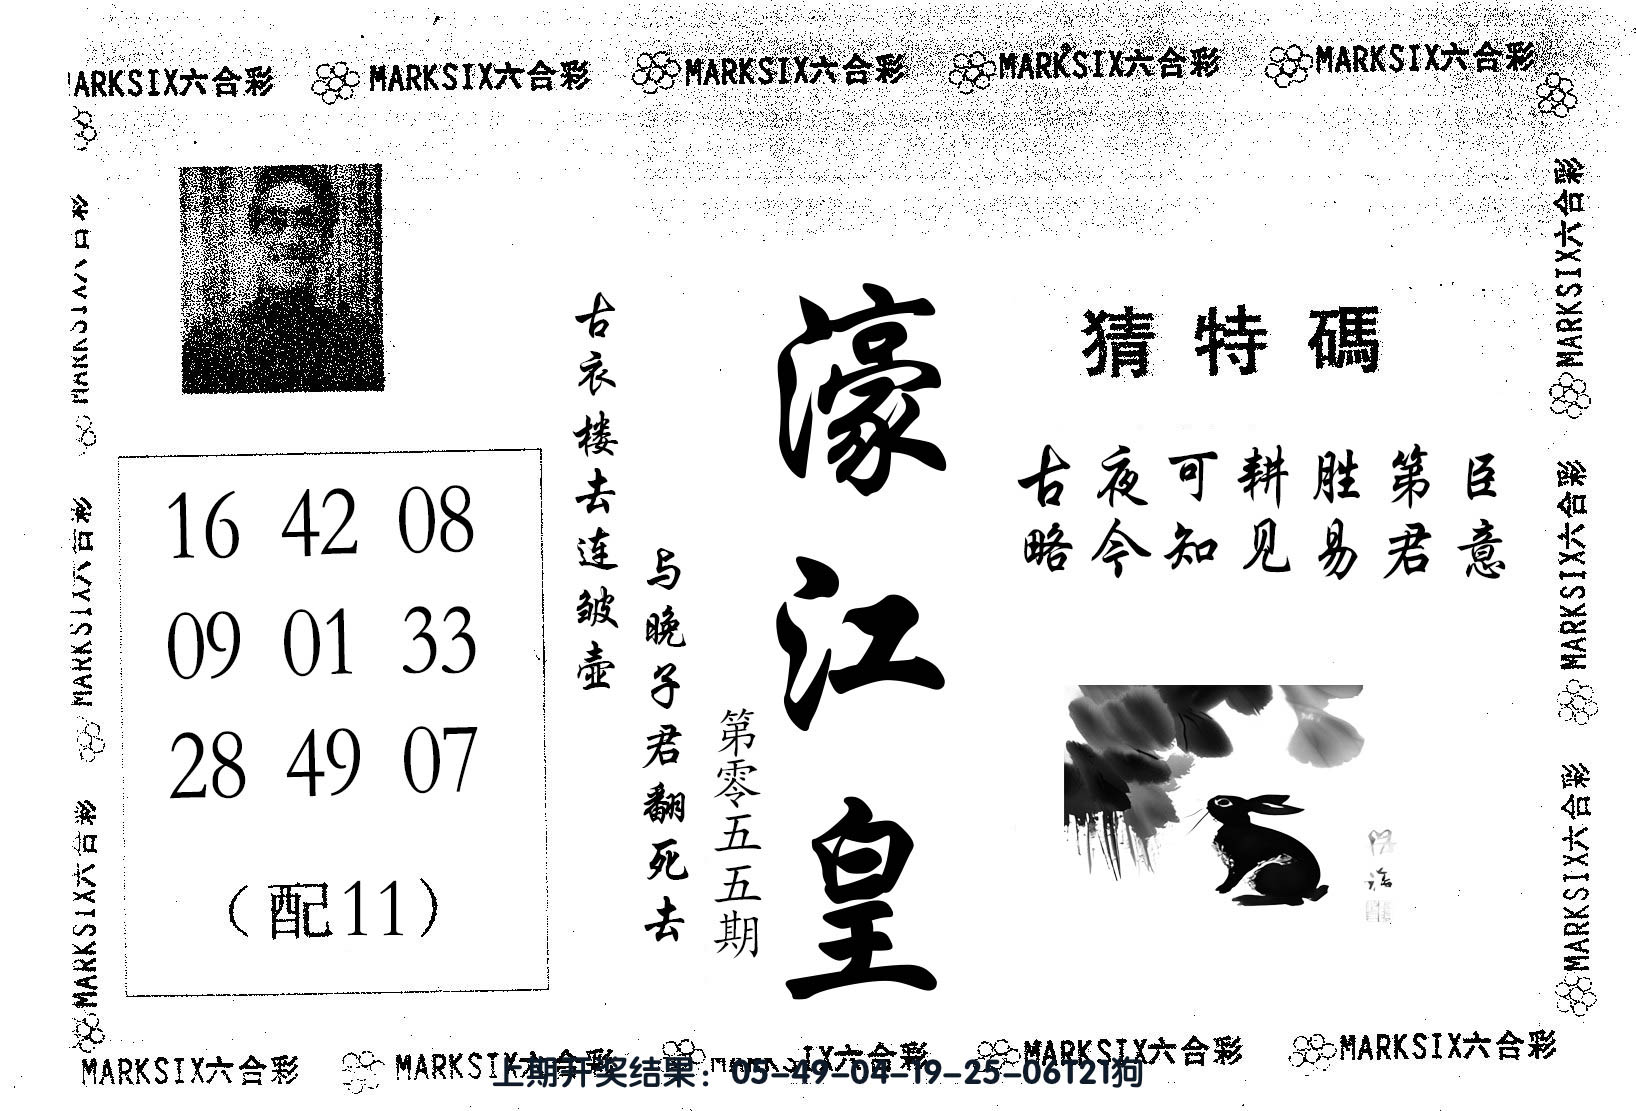 MARKSIX六合彩 MARKSIX六合彩 MARKSIX六合彩 MARKSIX六合彩
MARKSIX六合彩
MARKSIX六合彩
MARKSIX六合彩
MARKSIX六合彩
MARKSIX六合彩
MARKSIX六合彩
猜特碼
古夜可耕胜第臣
略今知见易君意
濠江皇
第零五五期
与晚子君翻死去
古衣楼去连皱壶
16 42 08
09 01 33
28 49 07
（配11）
MARKSIX六合彩 MARKSIX六合彩 IX六合彩 MARKSIX六合彩 MARKSIX六合彩
上期开奖结果：05-49-04-19-25-06T21狗